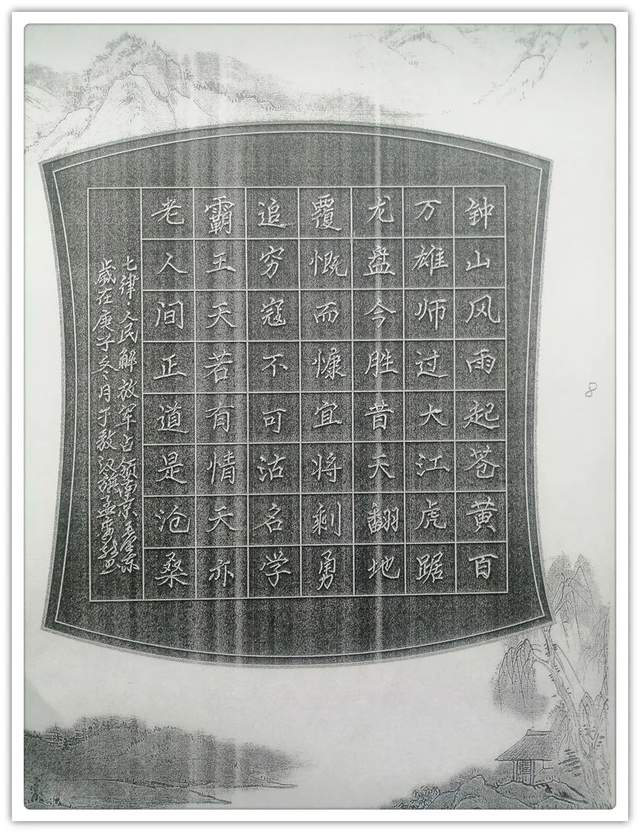 钟山风雨起苍黄百
万雄师过大江虎踞
龙盘今胜昔天翻地
覆慨而慷宜将剩勇
追穷寇不可沽名学
霸王天若有情天亦
老人间正道是沧桑
七律·人民解放军占领南京
歲在庚子冬月于敖汉旗
8